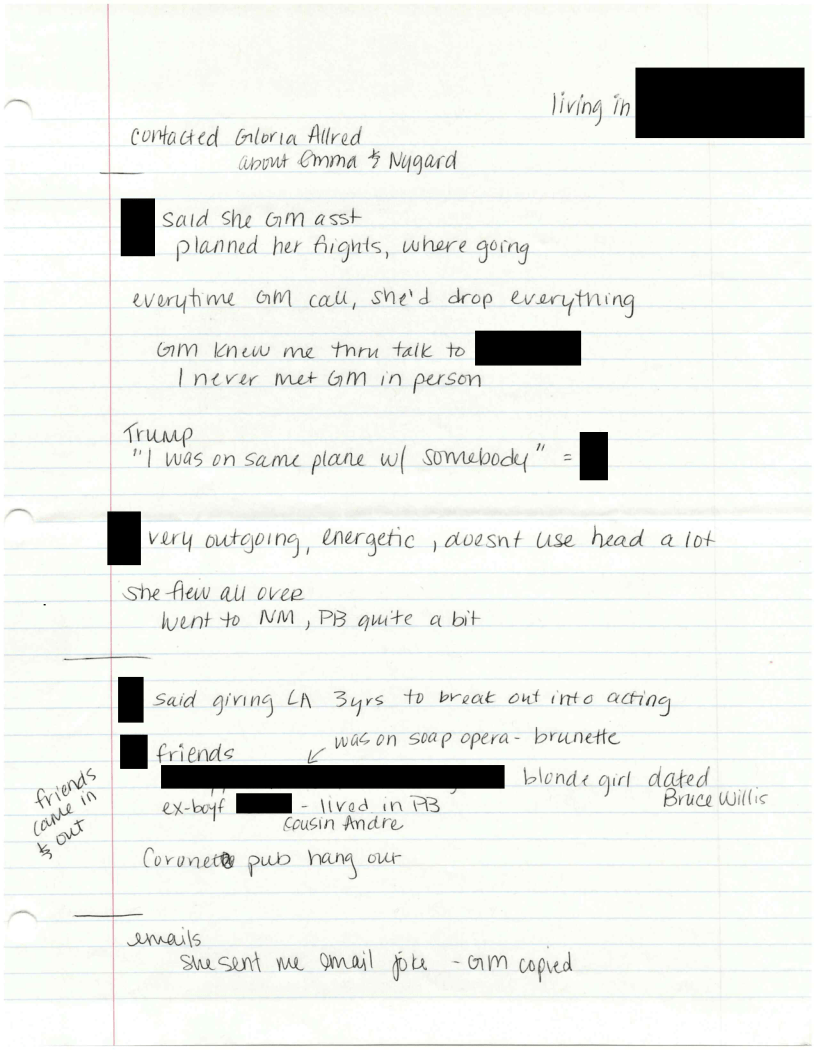 living in
contacted Gloria Allred
about Emma & Nygard
said she GM asst
planned her flights, where going
everytime GM call, she'd drop everything
GM knew me thru talk to
I never met GM in person
Trump
"I was on same plane w/ somebody" =
very outgoing, energetic, doesnt use head a lot
she flew all over
went to NM, PB quite a bit
said giving LA 3yrs to break out into acting
was on soap opera - brunette
friends
blonde girl dated
Bruce Willis
ex-boyf - lived in PB
cousin Andre
friends
came in
& out
Coronet pub hang out
emails
she sent me email joke - GM copied